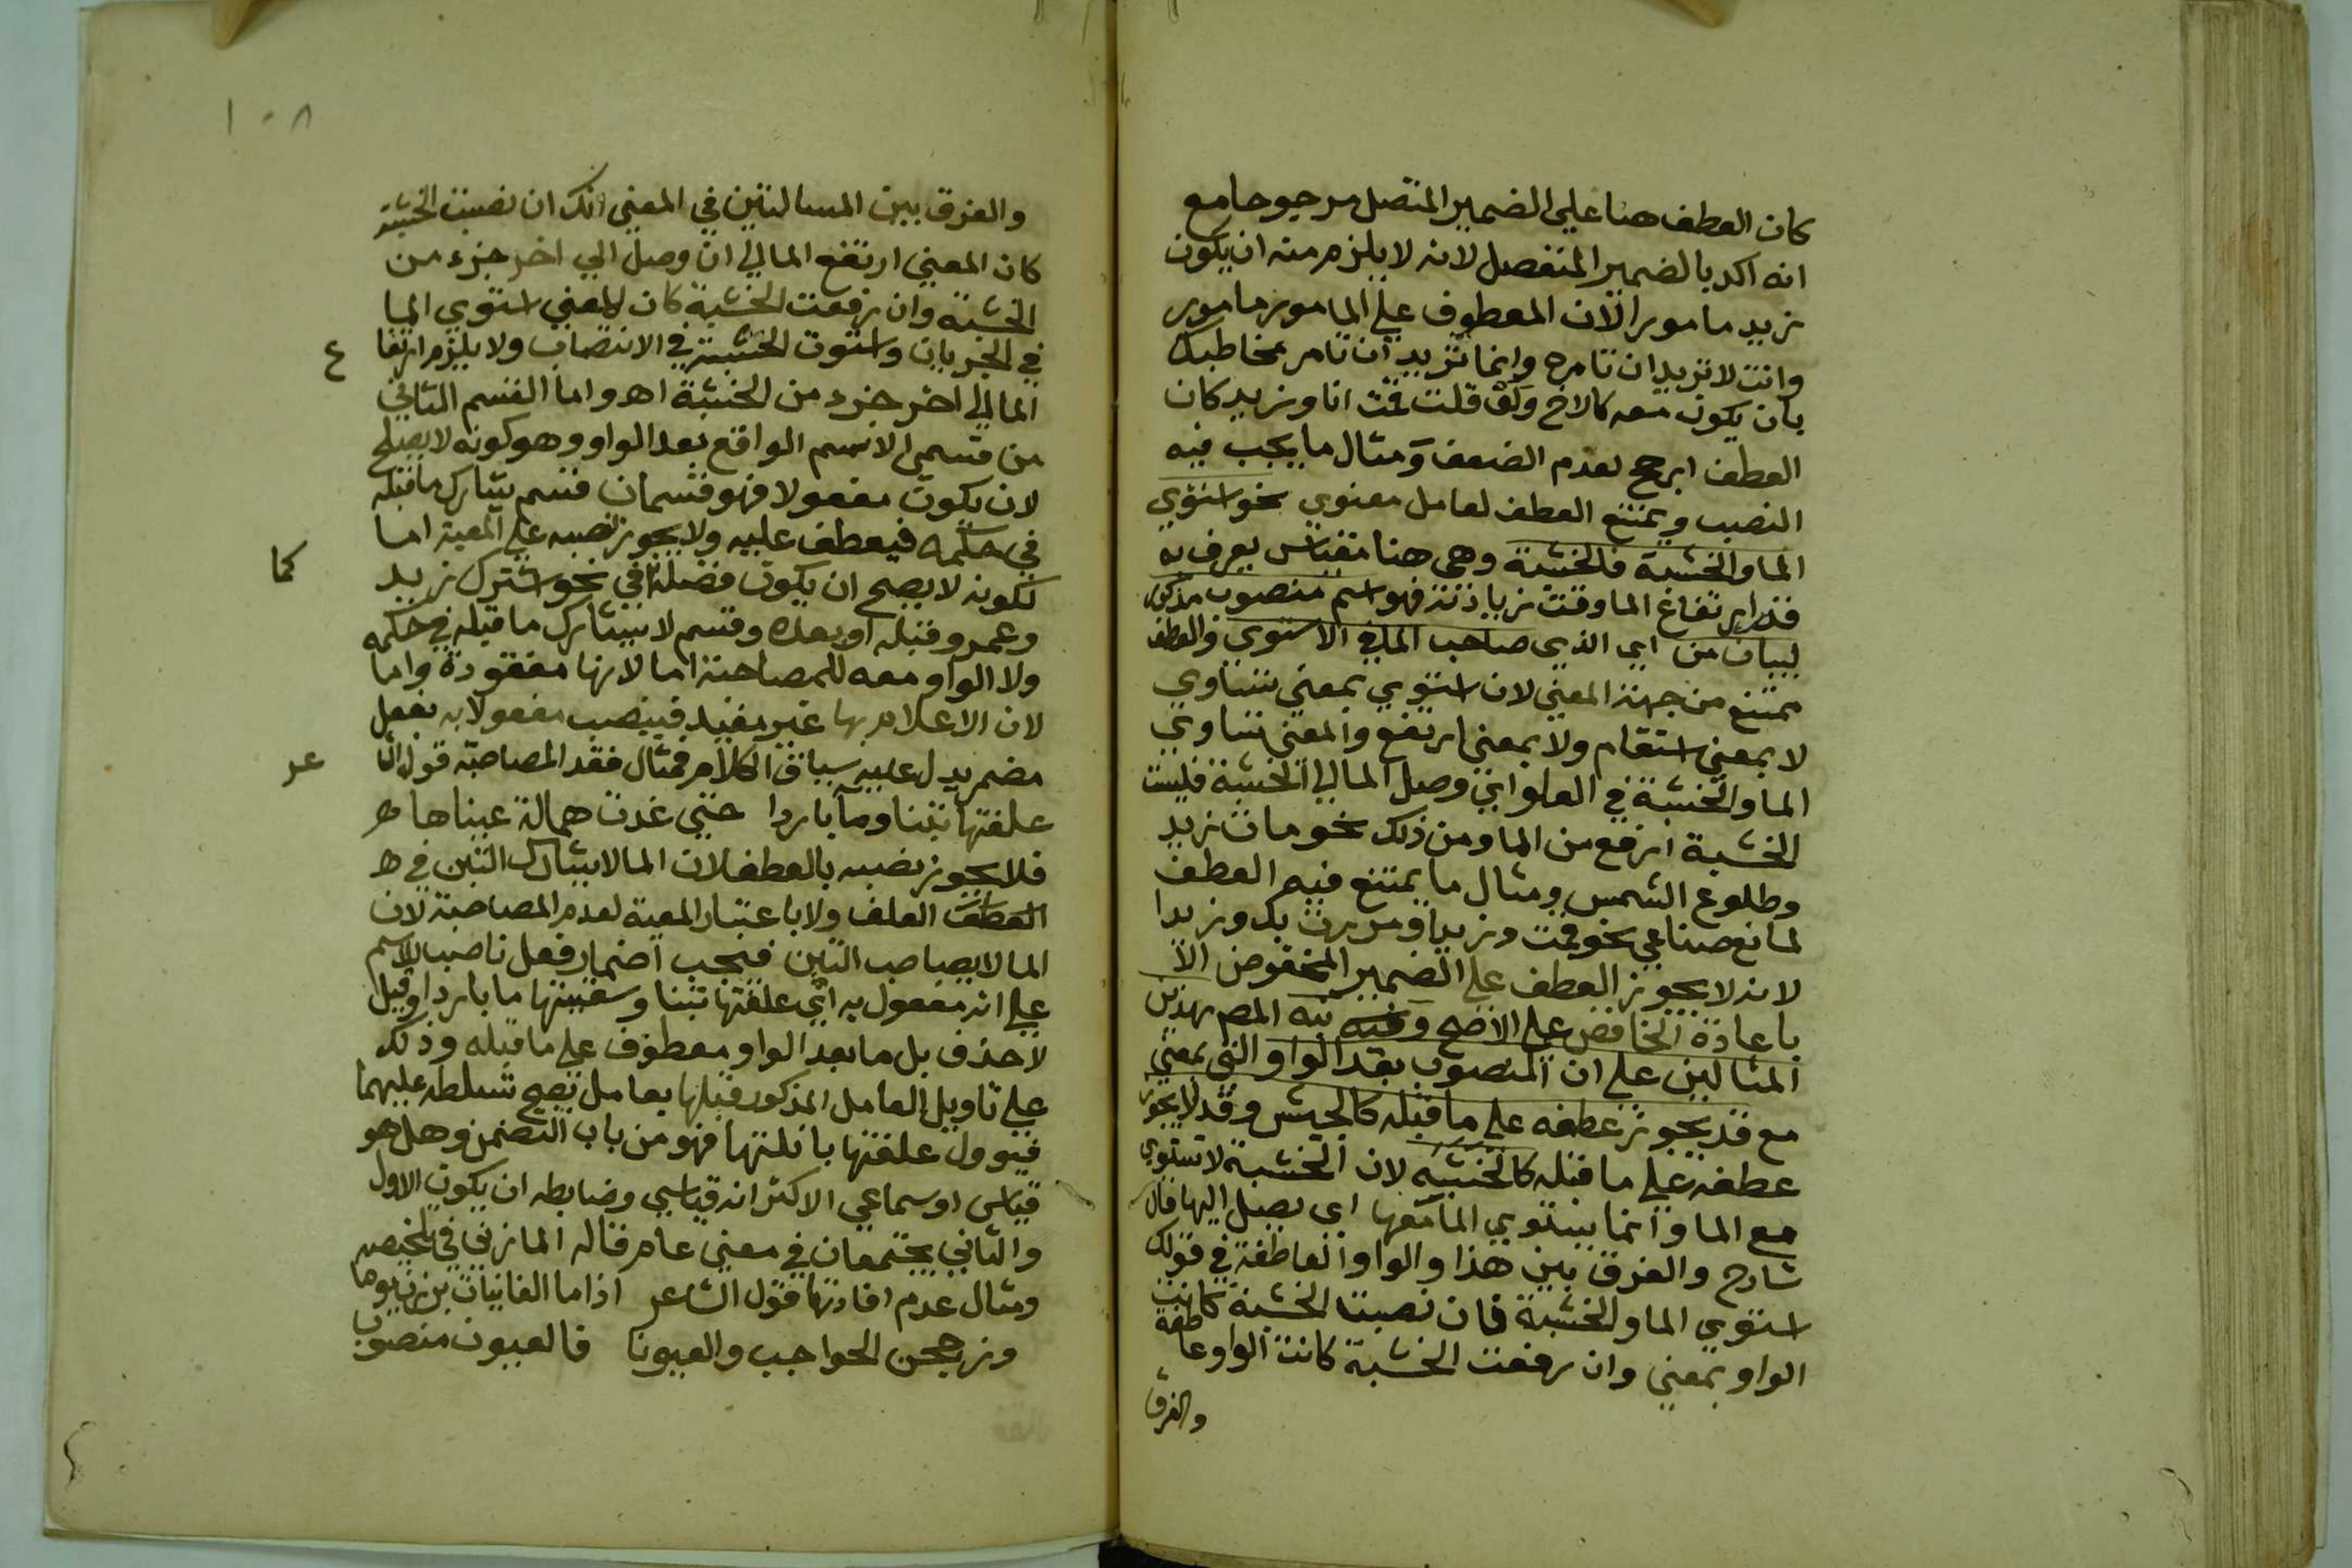 كان العطف هنا علي الضمير المتصل مرجوحا مع
انه اكد بالضمير المنفصل لانه لا يلزم منه ان يكون
زيد مامورا لان المعطوف علي المامور مامور
وانت لا تريد ان تامره وانما تريد ان تامر مخاطبك
بان يكون معه كالاخ ولو قلت قمت انا وزيد كان
العطف ارجح لعدم الضعف ومثال ما يجب فيه
النصب ويمتنع العطف لعامل معنوي نحو استوي
الما والخشبة فالخشبة وهي هنا مقياس يعرف به
قدر ارتفاع الما وقت زيادته فهو اسم منصوب مذكور
لبيان من اي الذي صاحب الما في الاستوي والعطف
ممتنع من جهة المعني لان استوي بمعني تساوي
لا بمعني استقام ولا بمعني ارتفع والمعني تساوي
الما والخشبة في العلو اي وصل الما الي الخشبة فليست
الخشبة ارفع من الما ومن ذلك نحو مات زيد
وطلوع الشمس ومثال ما يمتنع فيه العطف
لمانع صناعي نحو قمت وزيدا ومررت بك وزيدا
لانه لا يجوز العطف علي الضمير المخفوض الا
باعادة الخافض علي الاصح وفيه نبه المص بهذين
المثالين علي ان المنصوب بعد الواو التي بمعني
مع قد يجوز عطفه علي ما قبله كالجيش وقد لا يجوز
عطفه علي ما قبله كالخشبة لان الخشبة لا تستوي
مع الما وانما يستوي الما معها اي يصل اليها قال
شارح والفرق بين هذا والواو العاطفة في قولك
استوي الما والخشبة فان نصبت الخشبة كانت
الواو بمعني وان رفعت الخشبة كانت الواو عاطفة
والفرق
١٠٨
والفرق بين المسالتين في المعني انك ان نصبت الخشبة
كان المعني ارتفع الما الي ان وصل الي اخر جزء من
الخشبة وان رفعت الخشبة كان المعني استوي الما
في الجريان واستوت الخشبة في الانتصاب ولا يلزم ارتفا ع
الما الي اخر جزء من الخشبة اه واما القسم الثاني
من قسمي الاسم الواقع بعد الواو وهو كونه لا يصلح
لان يكون مفعولا فهو قسمان قسم يشارك ما قبله
في حكمه فيعطف عليه ولا يجوز نصبه علي المعية اما
لكونه لا يصح ان يكون فضلة كما في نحو اشترك زيد
وعمرو وقبله او بعده وقسم لا يشارك ما قبله في حكمه
ولا الواو معه للمصاحبة اما لانها مفقودة واما
لان الاعلام بها غير مفيد فينصب مفعولا به بفعل
مضمر يدل عليه سياق الكلام فمثال فقد المصاحبة قول الشا عر
علفتها تبنا وماء باردا حتي غدت همالة عيناها ه
فلا يجوز نصبه بالعطف لان الما لا يشارك التبن في ه
العطف العلف ولا باعتبار المعية لعدم المصاحبة لان
الما لا يصاحب التبن فيجب اضمار فعل ناصب للاسم
علي انه مفعول به اي علفتها تبنا وسقيتها ما باردا وقيل
لا حذف بل ما بعد الواو معطوف علي ما قبله وذلك
علي تاويل العامل المذكور قبلها بعامل يصح تسلطه عليهما
فيوول علفتها بانلتها فهو من باب التضمن وهل هو
قياسي او سماعي الاكثر انه قياسي وضابطه ان يكون الاول
والثاني يجتمعان في معني عام قاله المازني في تلخيصه
ومثال عدم افادتها قول الشاعر اذا ما الغانيات برزن يوما
وزججن الحواجب والعيونا فالعيون منصوب